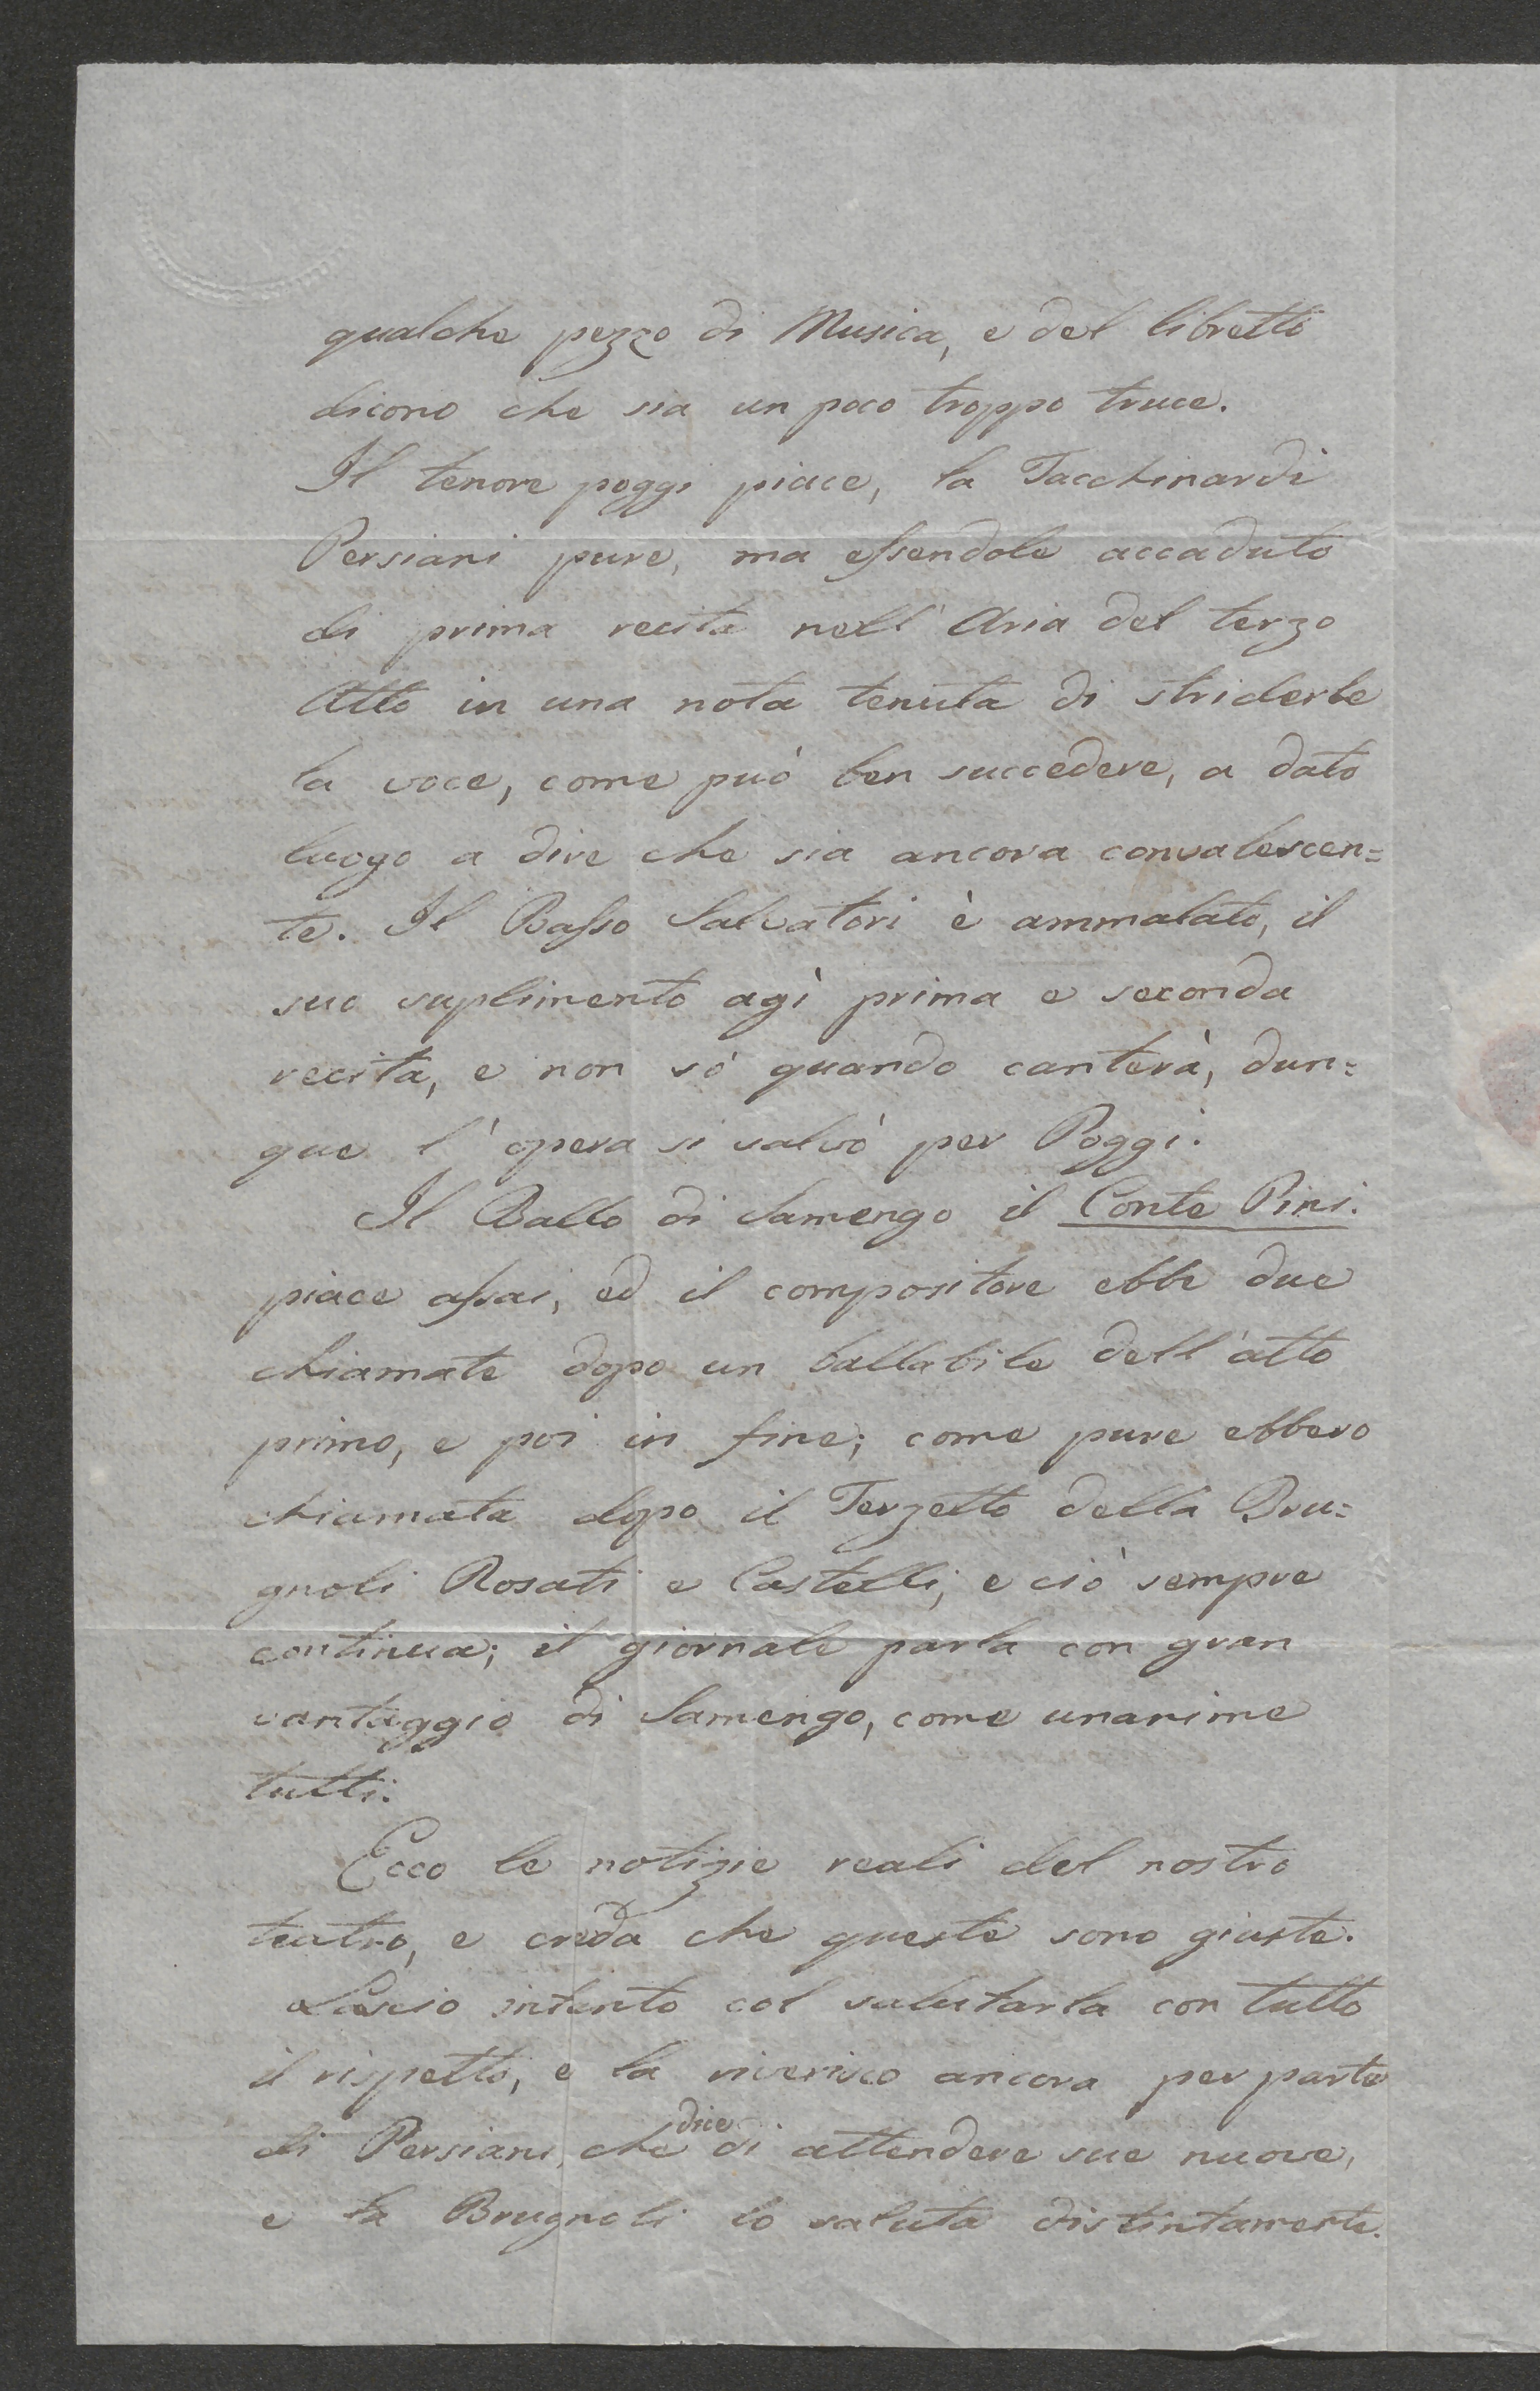 qualche pezzo di Musica, e del libretto
dicono che sia un poco troppo truce.
Il tenore poggi piace, la Tacchinardi
Persiani pure, ma eſsendole accaduto
di prima recita nell' Aria del terzo
Atto in una nota tenuta di striderle
la voce, come può ben succedere, a dato
luogo a dire che sia ancora convalescen=
te. Il Baſso Salvatori è ammalato, il
suo suplimento agì prima e seconda
recita, e non sò quando canterà, dun=
que l'opera si salvò per Poggi.
Il Ballo di Samengo il Conte Pini.
piace aſsai, ed il compositore ebbe due
chiamate dopo un ballabile dell'atto
primo, e poi in fine; come pure ebbero
chiamata dopo il Terzetto della Bru=
gnoli Rosati e Castelli, e ciò sempre
continua; il giornale parla con gran
vantaggio di Samengo, come unanime
tutti.
Ecco le notizie reali del nostro
teatro, e creda che queste sono giuste.
Lascio intento col salutarla con tutto
il rispetto, e la riverisco ancora per parte
di Persiani, che dice di attendere sue nuove,
e la Brugnoli lo saluta distintamente.